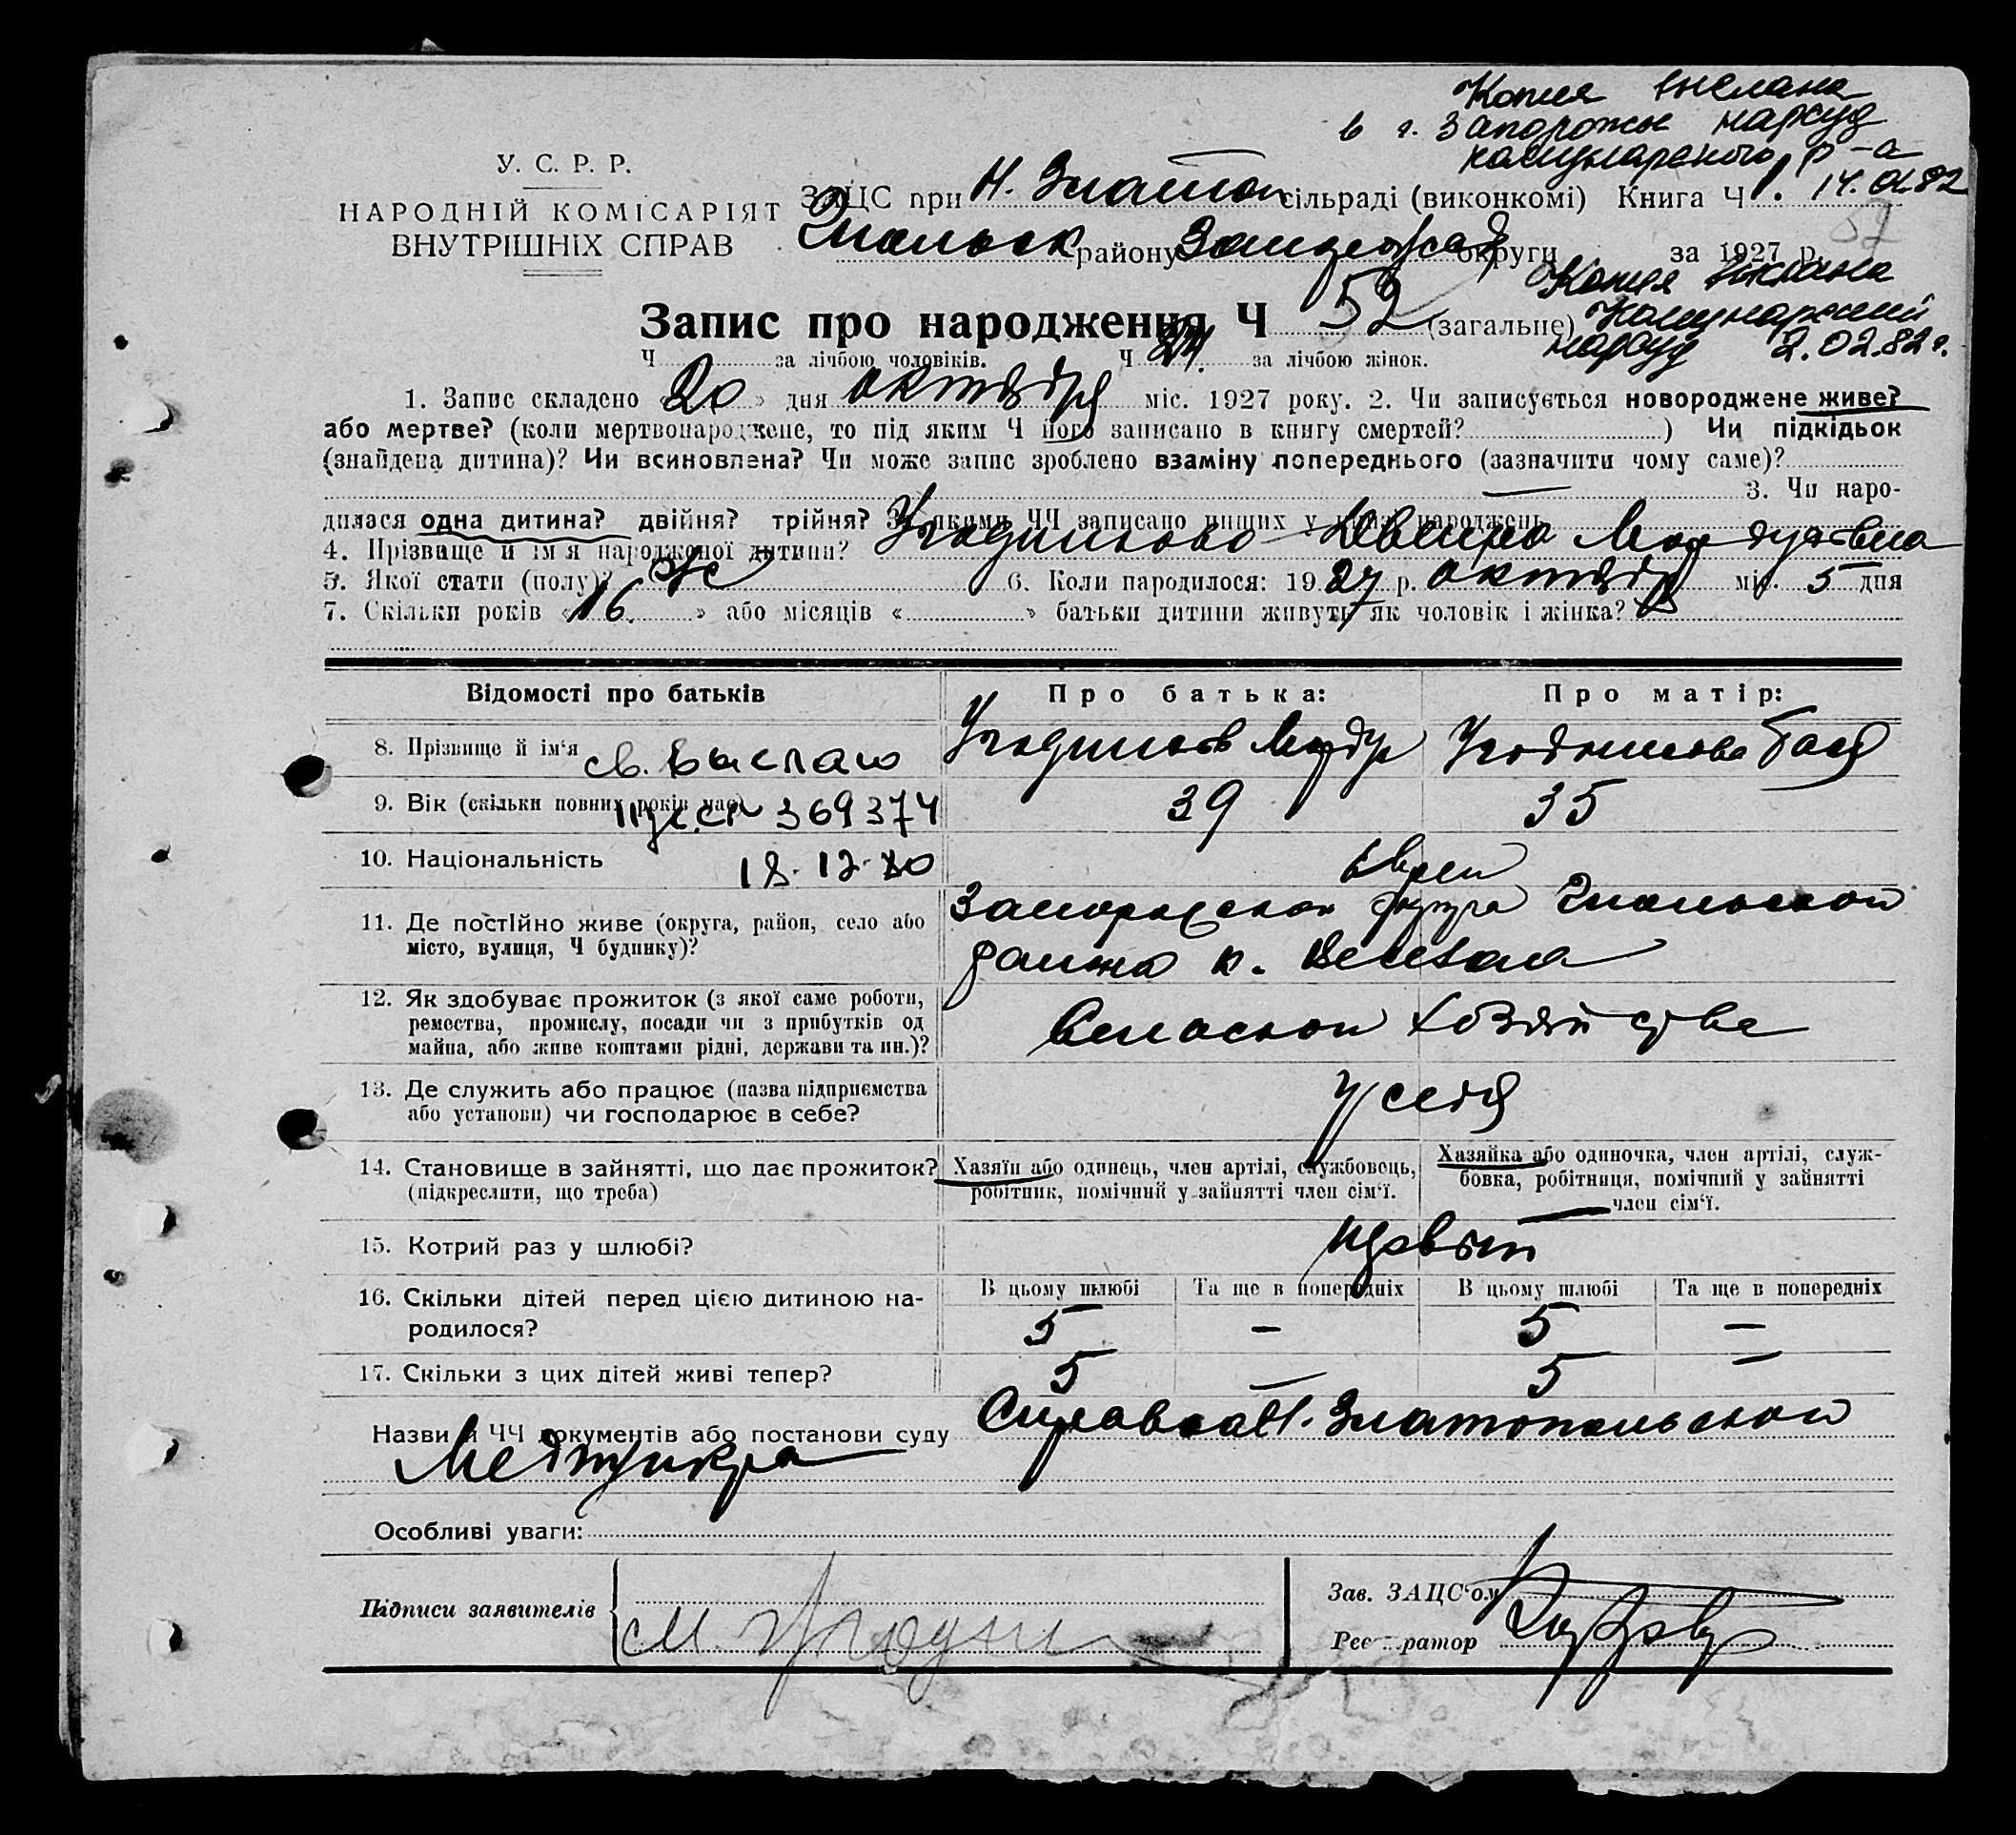 Копия выслана
в г. Запорожье нарсуд
коммунарского р-а
14.01.82
У. С. Р. Р.
НАРОДНІЙ КОМІСАРІЯТ
ВНУТРІШНІХ СПРАВ
ЗАЦС при Н. Златоп сільраді (виконкомі) Книга Ч 1.
району округи за 1927 р.
57
Копия выслана
Коммунарский
нарсуд 2.02.82 г.
Запис про народження Ч 52 (загальне)
Ч за лічбою чоловіків. Ч 24. за лічбою жінок.
1. Запис складено «20» дня октября міс. 1927 року. 2. Чи записується новороджене живе?
або мертве? (коли мертвонароджене, то під яким Ч його записано в книгу смертей? ) Чи підкідьок
(знайдена дитина)? Чи всиновлена? Чи може запис зроблено взаміну попереднього (зазначити чому саме)?
— 3. Чи наро-
дилася одна дитина? двійня? трійня? За якими ЧЧ записано инших у книзі народжень
4. Прізвище й ім'я народженої дитини? Угодникова Двейра Мордуховна
5. Якої стати (полу)? Же 6. Коли народилося: 1927 р. октября міс. 5 дня
7. Скільки років «16.» або місяців « » батьки дитини живуть як чоловік і жінка?
Відомості про батьків Про батька: Про матір:
8. Прізвище й ім'я Угодников Мордух Угодникова Бася
св. выслано
9. Вік (скільки повних років має) 39 35
369374
10. Національність Евреи
18.12.80
11. Де постійно живе (округа, район, село або
місто, вулиця, Ч будинку)?
Запорожской округа
района к.
12. Як здобуває прожиток (з якої саме роботи,
ремества, промислу, посади чи з прибутків од
майна, або живе коштами рідні, держави та ин.)?
Сельском хозяйстве
13. Де служить або працює (назва підприємства
або установи) чи господарює в себе?
У себя
14. Становище в зайнятті, що дає прожиток?
(підкреслити, що треба)
Хазяїн або одинець, член артілі, службовець,
робітник, помічний у зайнятті член сім'ї.
Хазяйка або одиночка, член артілі, служ-
бовка, робітниця, помічний у зайнятті
член сім'ї.
15. Котрий раз у шлюбі? первый
16. Скільки дітей перед цією дитиною на-
родилося?
В цьому шлюбі Та ще в попередніх В цьому шлюбі Та ще в попередніх
5 — 5 —
17. Скільки з цих дітей живі тепер? 5 — 5 —
Назви й ЧЧ документів або постанови суду Справка Н. Златопольской
Медпункта
Особливі уваги:
Підписи заявителів
Зав. ЗАЦС'ом
Реєстратор